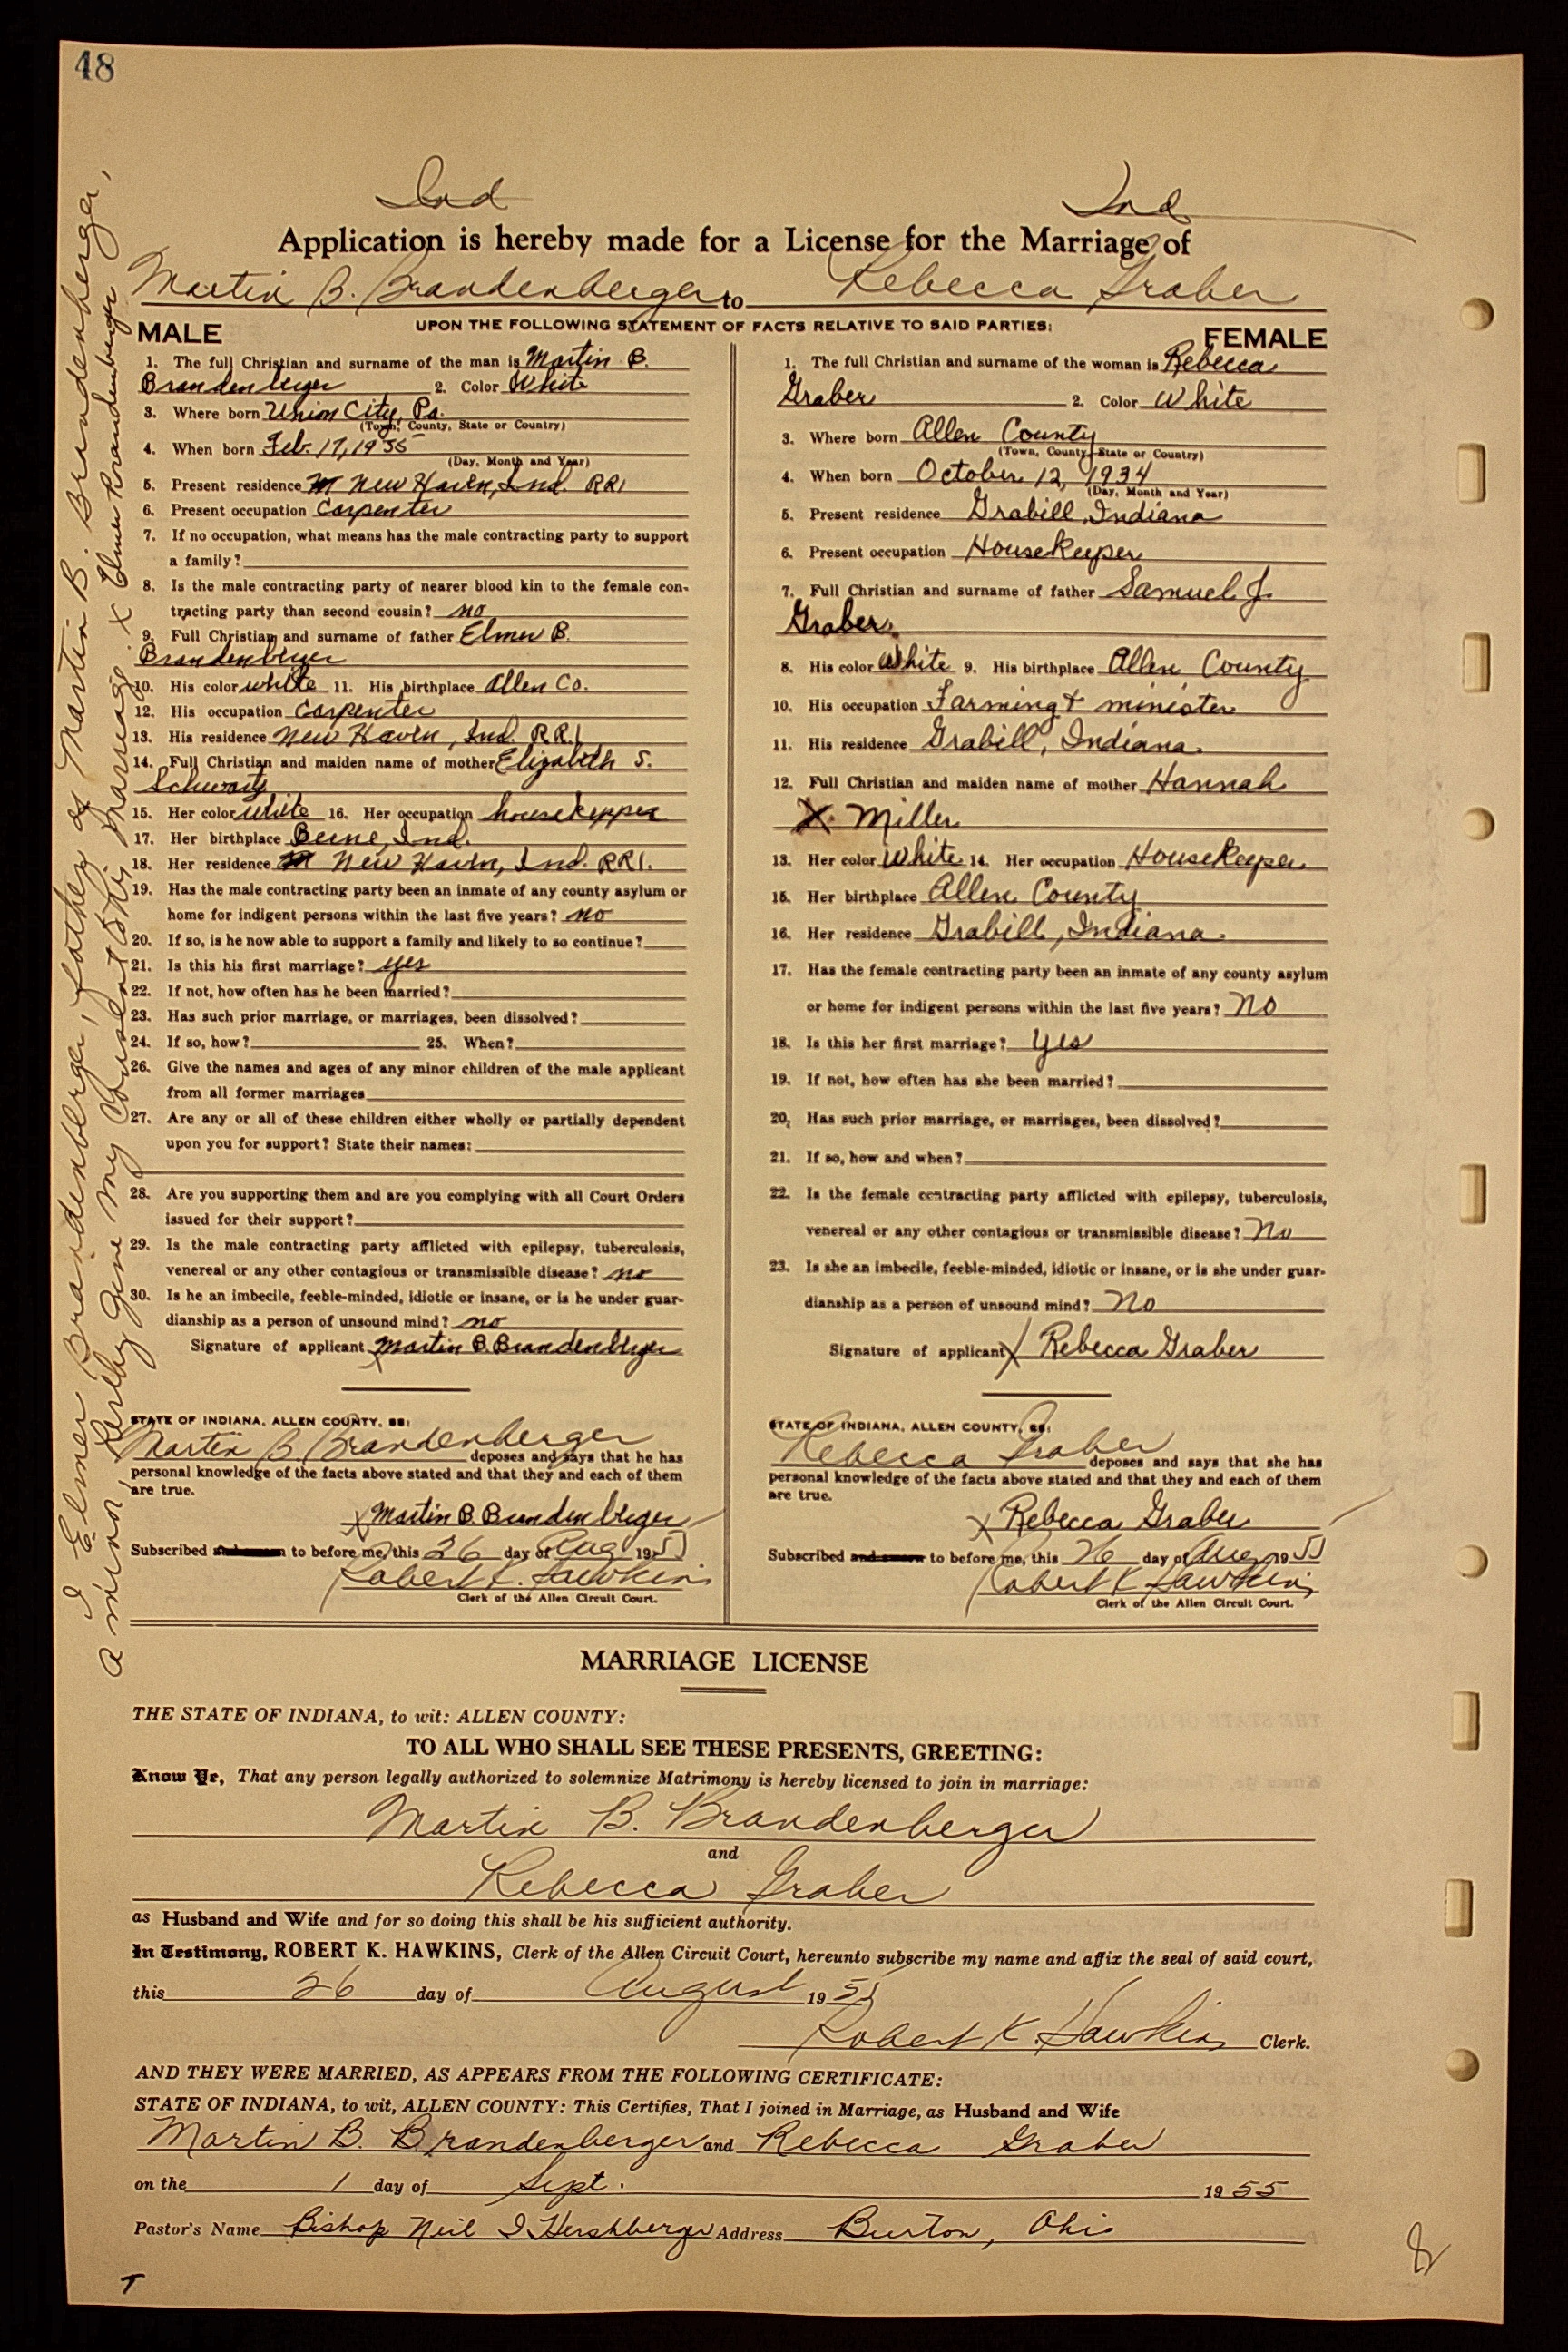 48
Ind Ind
Application is hereby made for a License for the Marriage of
Martin B. Brandenberger to Rebecca Graber
UPON THE FOLLOWING STATEMENT OF FACTS RELATIVE TO SAID PARTIES:
MALE
1. The full Christian and surname of the man is Martin B.
Brandenberger 2. Color White
3. Where born Union City, Pa.
(Town, County, State or Country)
4. When born Feb. 17, 1935
(Day, Month and Year)
5. Present residence New Haven, Ind. RR1
6. Present occupation Carpenter
7. If no occupation, what means has the male contracting party to support
a family?
8. Is the male contracting party of nearer blood kin to the female con-
tracting party than second cousin? no
9. Full Christian and surname of father Elmer B.
Brandenberger
10. His color white 11. His birthplace Allen Co.
12. His occupation Carpenter
13. His residence New Haven, Ind. RR.1
14. Full Christian and maiden name of mother Elizabeth S.
Schwartz
15. Her color white 16. Her occupation housekepper
17. Her birthplace Berne, Ind.
18. Her residence New Haven, Ind. RR1.
19. Has the male contracting party been an inmate of any county asylum or
home for indigent persons within the last five years? no
20. If so, is he now able to support a family and likely to so continue?
21. Is this his first marriage? yes
22. If not, how often has he been married?
23. Has such prior marriage, or marriages, been dissolved?
24. If so, how? 25. When?
26. Give the names and ages of any minor children of the male applicant
from all former marriages
27. Are any or all of these children either wholly or partially dependent
upon you for support? State their names:
28. Are you supporting them and are you complying with all Court Orders
issued for their support?
29. Is the male contracting party afflicted with epilepsy, tuberculosis,
venereal or any other contagious or transmissible disease? no
30. Is he an imbecile, feeble-minded, idiotic or insane, or is he under guar-
dianship as a person of unsound mind? no
Signature of applicant X Martin B. Brandenberger
STATE OF INDIANA, ALLEN COUNTY, SS:
Martin B. Brandenberger deposes and says that he has
personal knowledge of the facts above stated and that they and each of them
are true.
X Martin B. Brandenberger
Subscribed and sworn to before me, this 26 day of Aug 1955
Robert K. Hawkins
Clerk of the Allen Circuit Court.
FEMALE
1. The full Christian and surname of the woman is Rebecca
Graber 2. Color White
3. Where born Allen County
(Town, County, State or Country)
4. When born October 12, 1934
(Day, Month and Year)
5. Present residence Grabill, Indiana
6. Present occupation HouseKeeper
7. Full Christian and surname of father Samuel J.
Graber.
8. His color White 9. His birthplace Allen County
10. His occupation Farming & minister
11. His residence Grabill, Indiana.
12. Full Christian and maiden name of mother Hannah
Miller
13. Her color White 14. Her occupation HouseKeeper
15. Her birthplace Allen County
16. Her residence Grabill, Indiana.
17. Has the female contracting party been an inmate of any county asylum
or home for indigent persons within the last five years? No
18. Is this her first marriage? Yes
19. If not, how often has she been married?
20. Has such prior marriage, or marriages, been dissolved?
21. If so, how and when?
22. Is the female contracting party afflicted with epilepsy, tuberculosis,
venereal or any other contagious or transmissible disease? No
23. Is she an imbecile, feeble-minded, idiotic or insane, or is she under guar-
dianship as a person of unsound mind? No
Signature of applicant X Rebecca Graber
STATE OF INDIANA, ALLEN COUNTY, SS:
Rebecca Graber deposes and says that she has
personal knowledge of the facts above stated and that they and each of them
are true.
X Rebecca Graber
Subscribed and sworn to before me, this 26 day of Aug 1955
Robert K Hawkins
Clerk of the Allen Circuit Court.
I Elmer Brandenberger, father of Martin B. Brandenberger,
a minor, hereby give my consent to his marriage. X Elmer Brandenberger
MARRIAGE LICENSE
THE STATE OF INDIANA, to wit: ALLEN COUNTY:
TO ALL WHO SHALL SEE THESE PRESENTS, GREETING:
Know Ye, That any person legally authorized to solemnize Matrimony is hereby licensed to join in marriage:
Martin B. Brandenberger
and
Rebecca Graber
as Husband and Wife and for so doing this shall be his sufficient authority.
In Testimony, ROBERT K. HAWKINS, Clerk of the Allen Circuit Court, hereunto subscribe my name and affix the seal of said court,
this 26 day of August 1955
Robert K. Hawkins Clerk.
AND THEY WERE MARRIED, AS APPEARS FROM THE FOLLOWING CERTIFICATE:
STATE OF INDIANA, to wit, ALLEN COUNTY: This Certifies, That I joined in Marriage, as Husband and Wife
Martin B. Brandenberger and Rebecca Graber
on the 1 day of Sept. 1955
Pastor's Name Bishop Neil I Hershberger Address Burton, Ohio
T